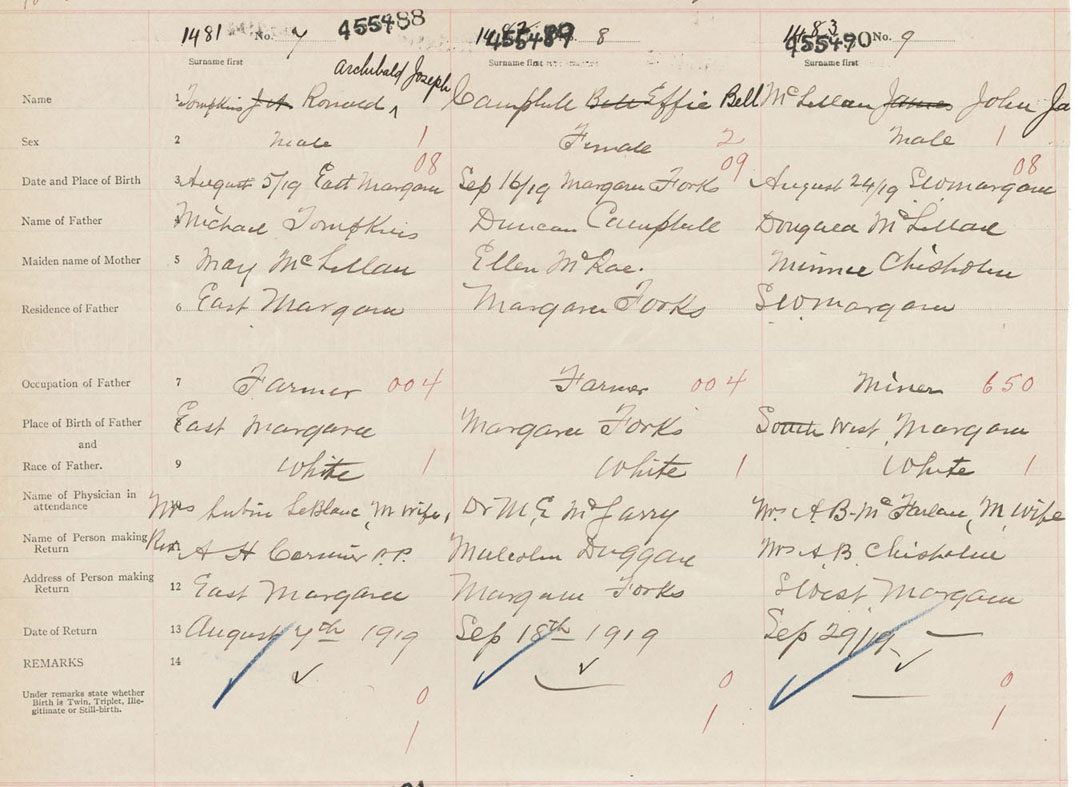 1481 No. 7 455488 1482 455489 No. 8 1483 455490 No. 9
Surname first Surname first Surname first
Archibald Joseph
Name 1 Tompkins J. A. Ronald Campbell Bell Effie Bell McLellan James John Ja
Sex 2 Male 1 Female 2 Male 1
08 09 08
Date and Place of Birth 3 August 5/19 East Margaree Sep 16/19 Margaree Forks August 24/19 S W Margaree
Name of Father 4 Michael Tompkins Duncan Campbell Dougald McLellan
Maiden name of Mother 5 May McLellan Ellen McRae. Minnie Chisholm
Residence of Father 6 East Margaree Margaree Forks S W Margaree
Occupation of Father 7 Farmer 004 Farmer 004 Miner 650
Place of Birth of Father 8 East Margaree Margaree Forks South West Margaree
and
Race of Father. 9 White 1 White 1 White 1
Name of Physician in
attendance 10 Mrs LeBlanc, M wife, Dr M. E. McGarry Mrs A. B. McFarlan, M. wife
Name of Person making
Return 11 Rev. A H Cormier P.P. Malcolm Duggan Mrs A. B. Chisholm
Address of Person making
Return 12 East Margaree Margaree Forks S West Margaree
Date of Return 13 August 7th 1919 Sep 18th 1919 Sep 29/19
REMARKS 14
Under remarks state whether
Birth is Twin, Triplet, Ille-
gitimate or Still-birth.
0 0 0
1 1 1